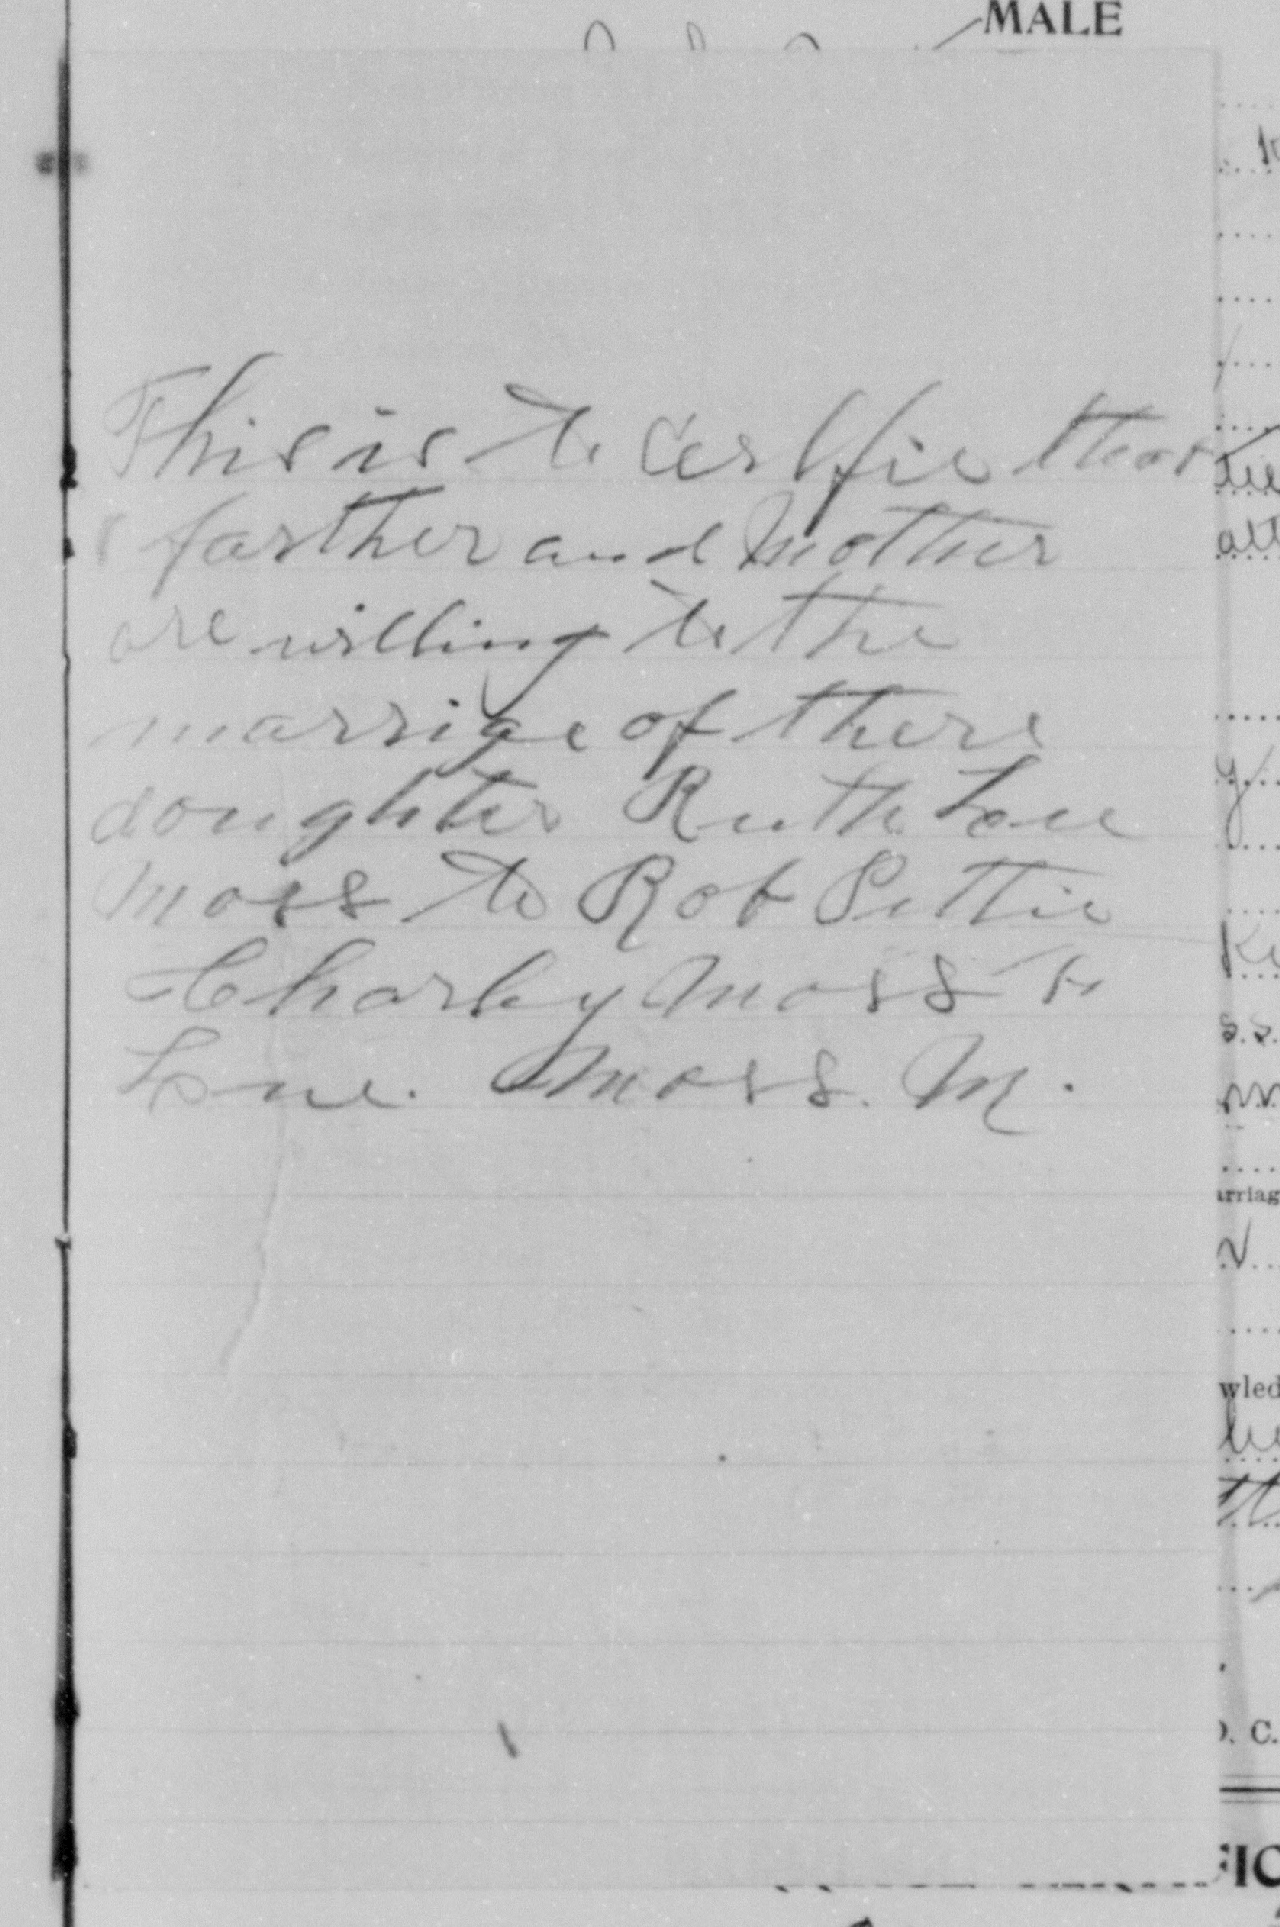 MALE
This is to Certfie that
farther and Mother
are willing to the
marrige of there
doughter Ruth Lou
Moss to Rob Pettie
Charley Moss
Lou. Moss. M.
arriag
wled
D. C.
FIC